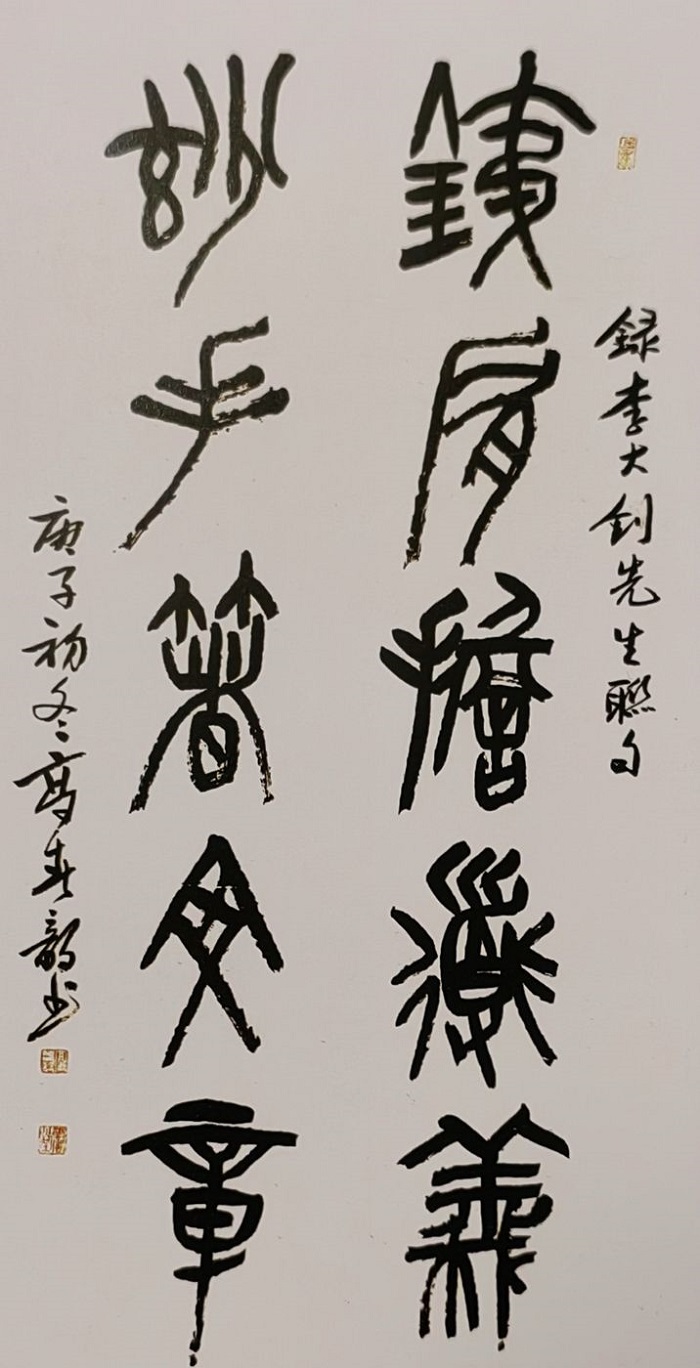 録李大釗先生聯句
銕肩擔道義
玅手著文章
庚子初冬高春韵书